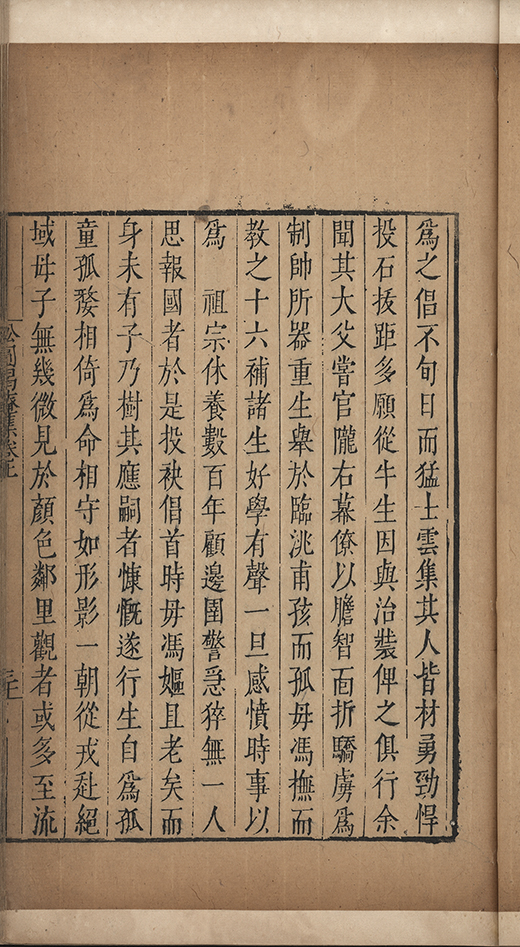 為之倡不旬日而猛士雲集其人皆材勇勁悍
投石拔距多願從牛生因與治裝俾之俱行余
聞其大父嘗官隴右幕僚以膽智面折驕虜為
制帥所器重生舉於臨洮甫孩而孤母馮撫而
教之十六補諸生好學有聲一旦感憤時事以
為　祖宗休養數百年顧邊圉警急猝無一人
思報國者於是投袂倡首時毋馮嫗且老矣而
身未有子乃樹其應嗣者慷慨遂行生自為孤
童孤嫠相倚為命相守如形影一朝從戎赴絕
域毋子無幾微見於顏色鄰里觀者或多至流